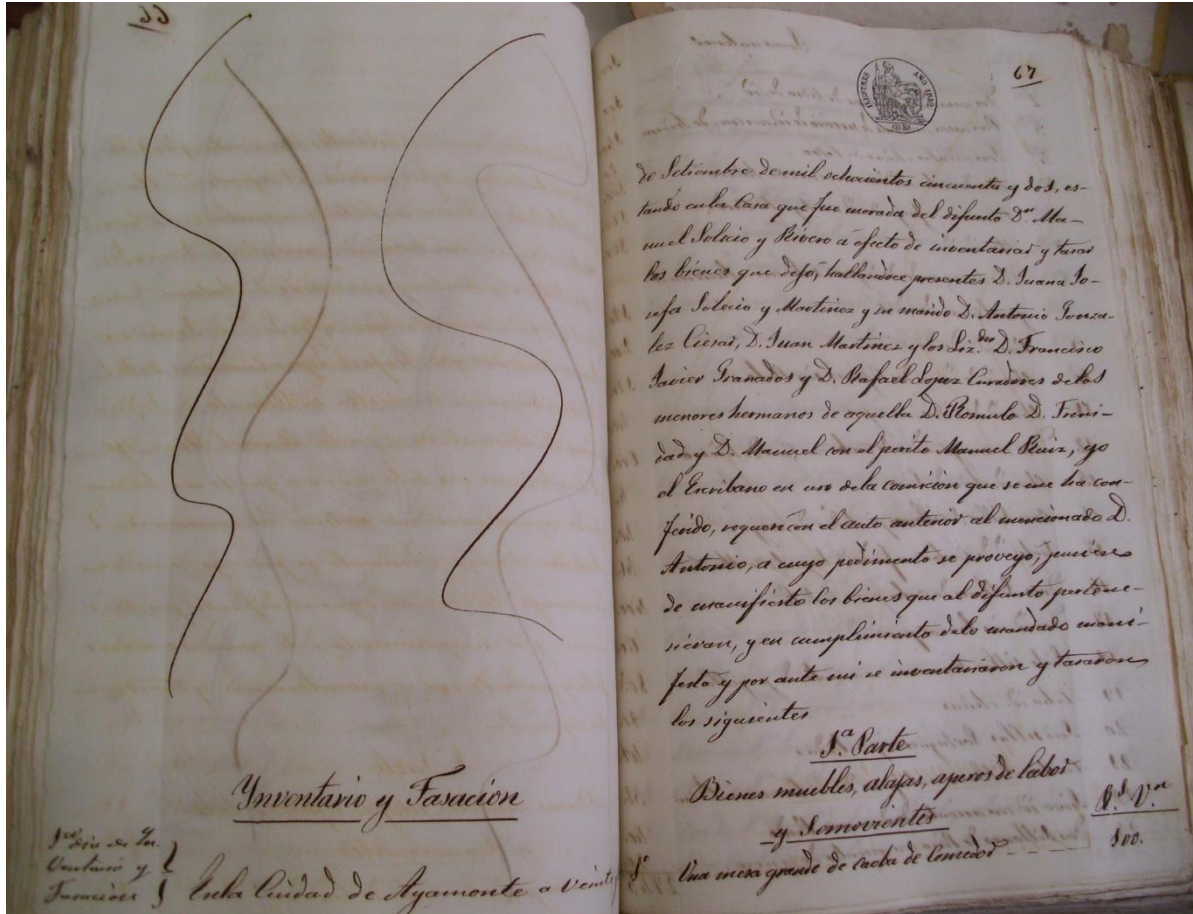 66
Ynventario y Tasacion
1er dia de Yn-
ventario y
Tasacion
En la Ciudad de Ayamonte a veinte
67
ILUSTRES AÑO 1852
60 Rs
de Setiembre de mil ochocientos cincuenta y dos, es-
tando en la Casa que fue morada del difunto Dn. Ma-
nuel Solecio y Rivero a efecto de inventariar y tasar
los bienes que dejó, hallandoce presentes D. Juana Jo-
sefa Solecio y Martinez y su marido D. Antonio Gonza-
lez Ciesar, D. Juan Martinez y los Lizdos. D. Francisco
Javier Granados y D. Rafael Lopez Curadores de los
menores hermanos de aquella D. Romulo D. Trini-
dad y D. Manuel con el perito Manuel Ruiz, yo
el Escribano en uso de la comicion que se me ha con-
ferido, requeri con el auto anterior al mencionado D.
Antonio, a cuyo pedimento se proveyo, puciese
de manifiesto los bienes que al difunto pertene-
sieran, y en cumplimiento de lo mandado mani-
festo y por ante mi se inventariaron y tasaron
los siguientes
1.a Parte
Bienes muebles, alajas, aperos de labor
y Semovientes
Rs. Vn.
1º Una mesa grande de caoba de Comedor 100.